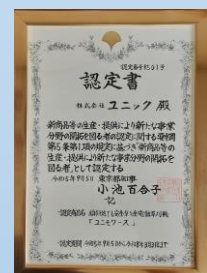 認定書
株式会社 ユニック 殿
新商品等の生産・提供により新たな事業
分野の開拓を図る者の認定に関する要綱
第5条第1項の規定に基づき新商品等の
生産・提供により新たな事業分野の開拓を
図る者として認定する
東京都知事
小池百合子
記
「ユニモワース」